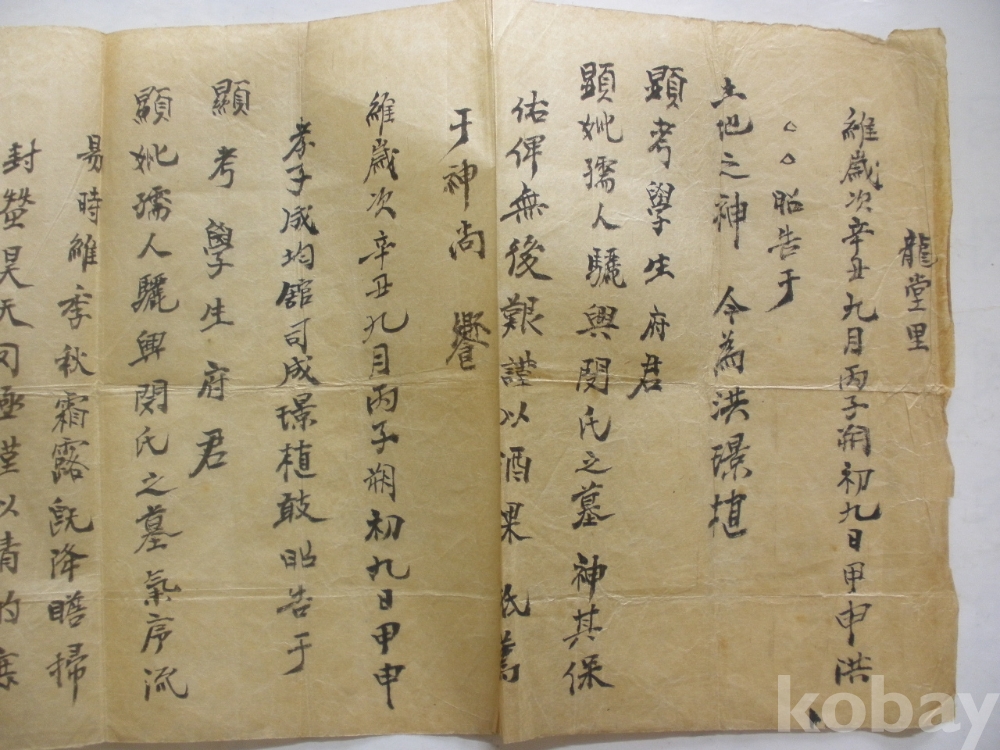 龍堂里
維歲次辛丑九月丙子朔初九日甲申洪
△△昭告于
土地之神 今為洪璟植
顯考學生府君
顯妣孺人驪興閔氏之墓 神其保
佑俾無後艱謹以酒果 祇薦
于神尚 饗
維歲次辛丑九月丙子朔初九日甲申
孝子成均館司成璟植敢昭告于
顯考學生府君
顯妣孺人驪興閔氏之墓氣序流
易時維季秋霜露旣降瞻掃
封塋昊天罔極謹以清酌庶
kobay